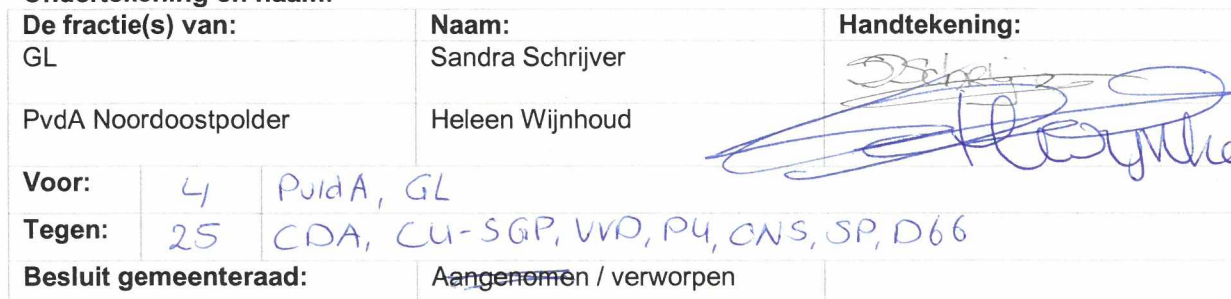 De fractie(s) van: Naam: Handtekening:
GL Sandra Schrijver
PvdA Noordoostpolder Heleen Wijnhoud
Voor: 4 PvdA, GL
Tegen: 25 CDA, CU-SGP, VVD, PU, ONS, SP, D66
Besluit gemeenteraad: Aangenomen / verworpen